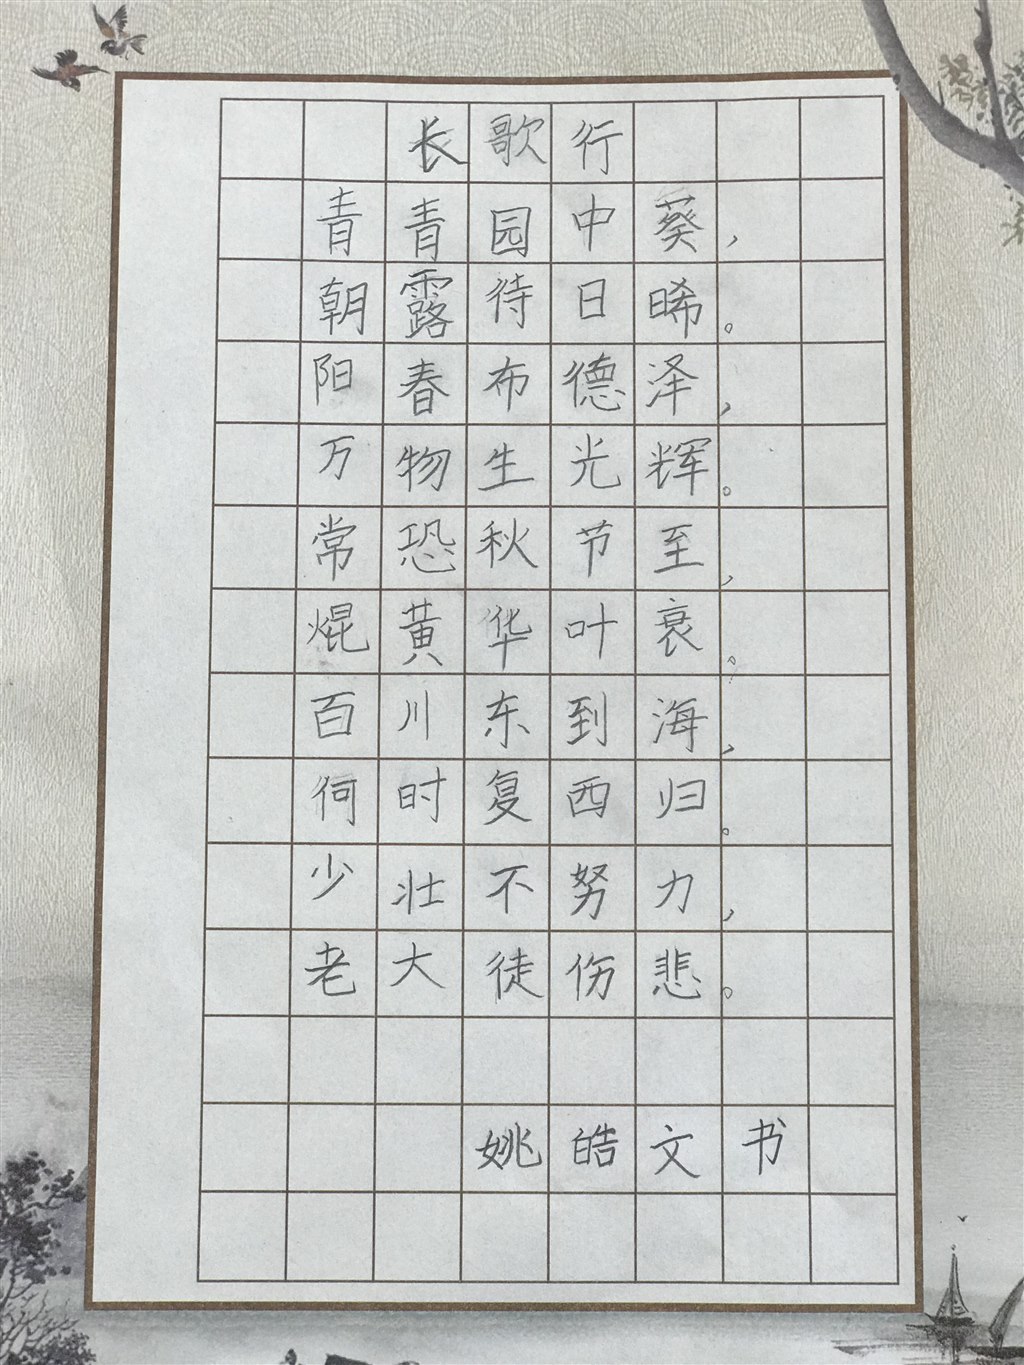 长歌行
青青园中葵，
朝露待日晞。
阳春布德泽，
万物生光辉。
常恐秋节至，
焜黄华叶衰。
百川东到海，
何时复西归。
少壮不努力，
老大徒伤悲。
姚皓文书